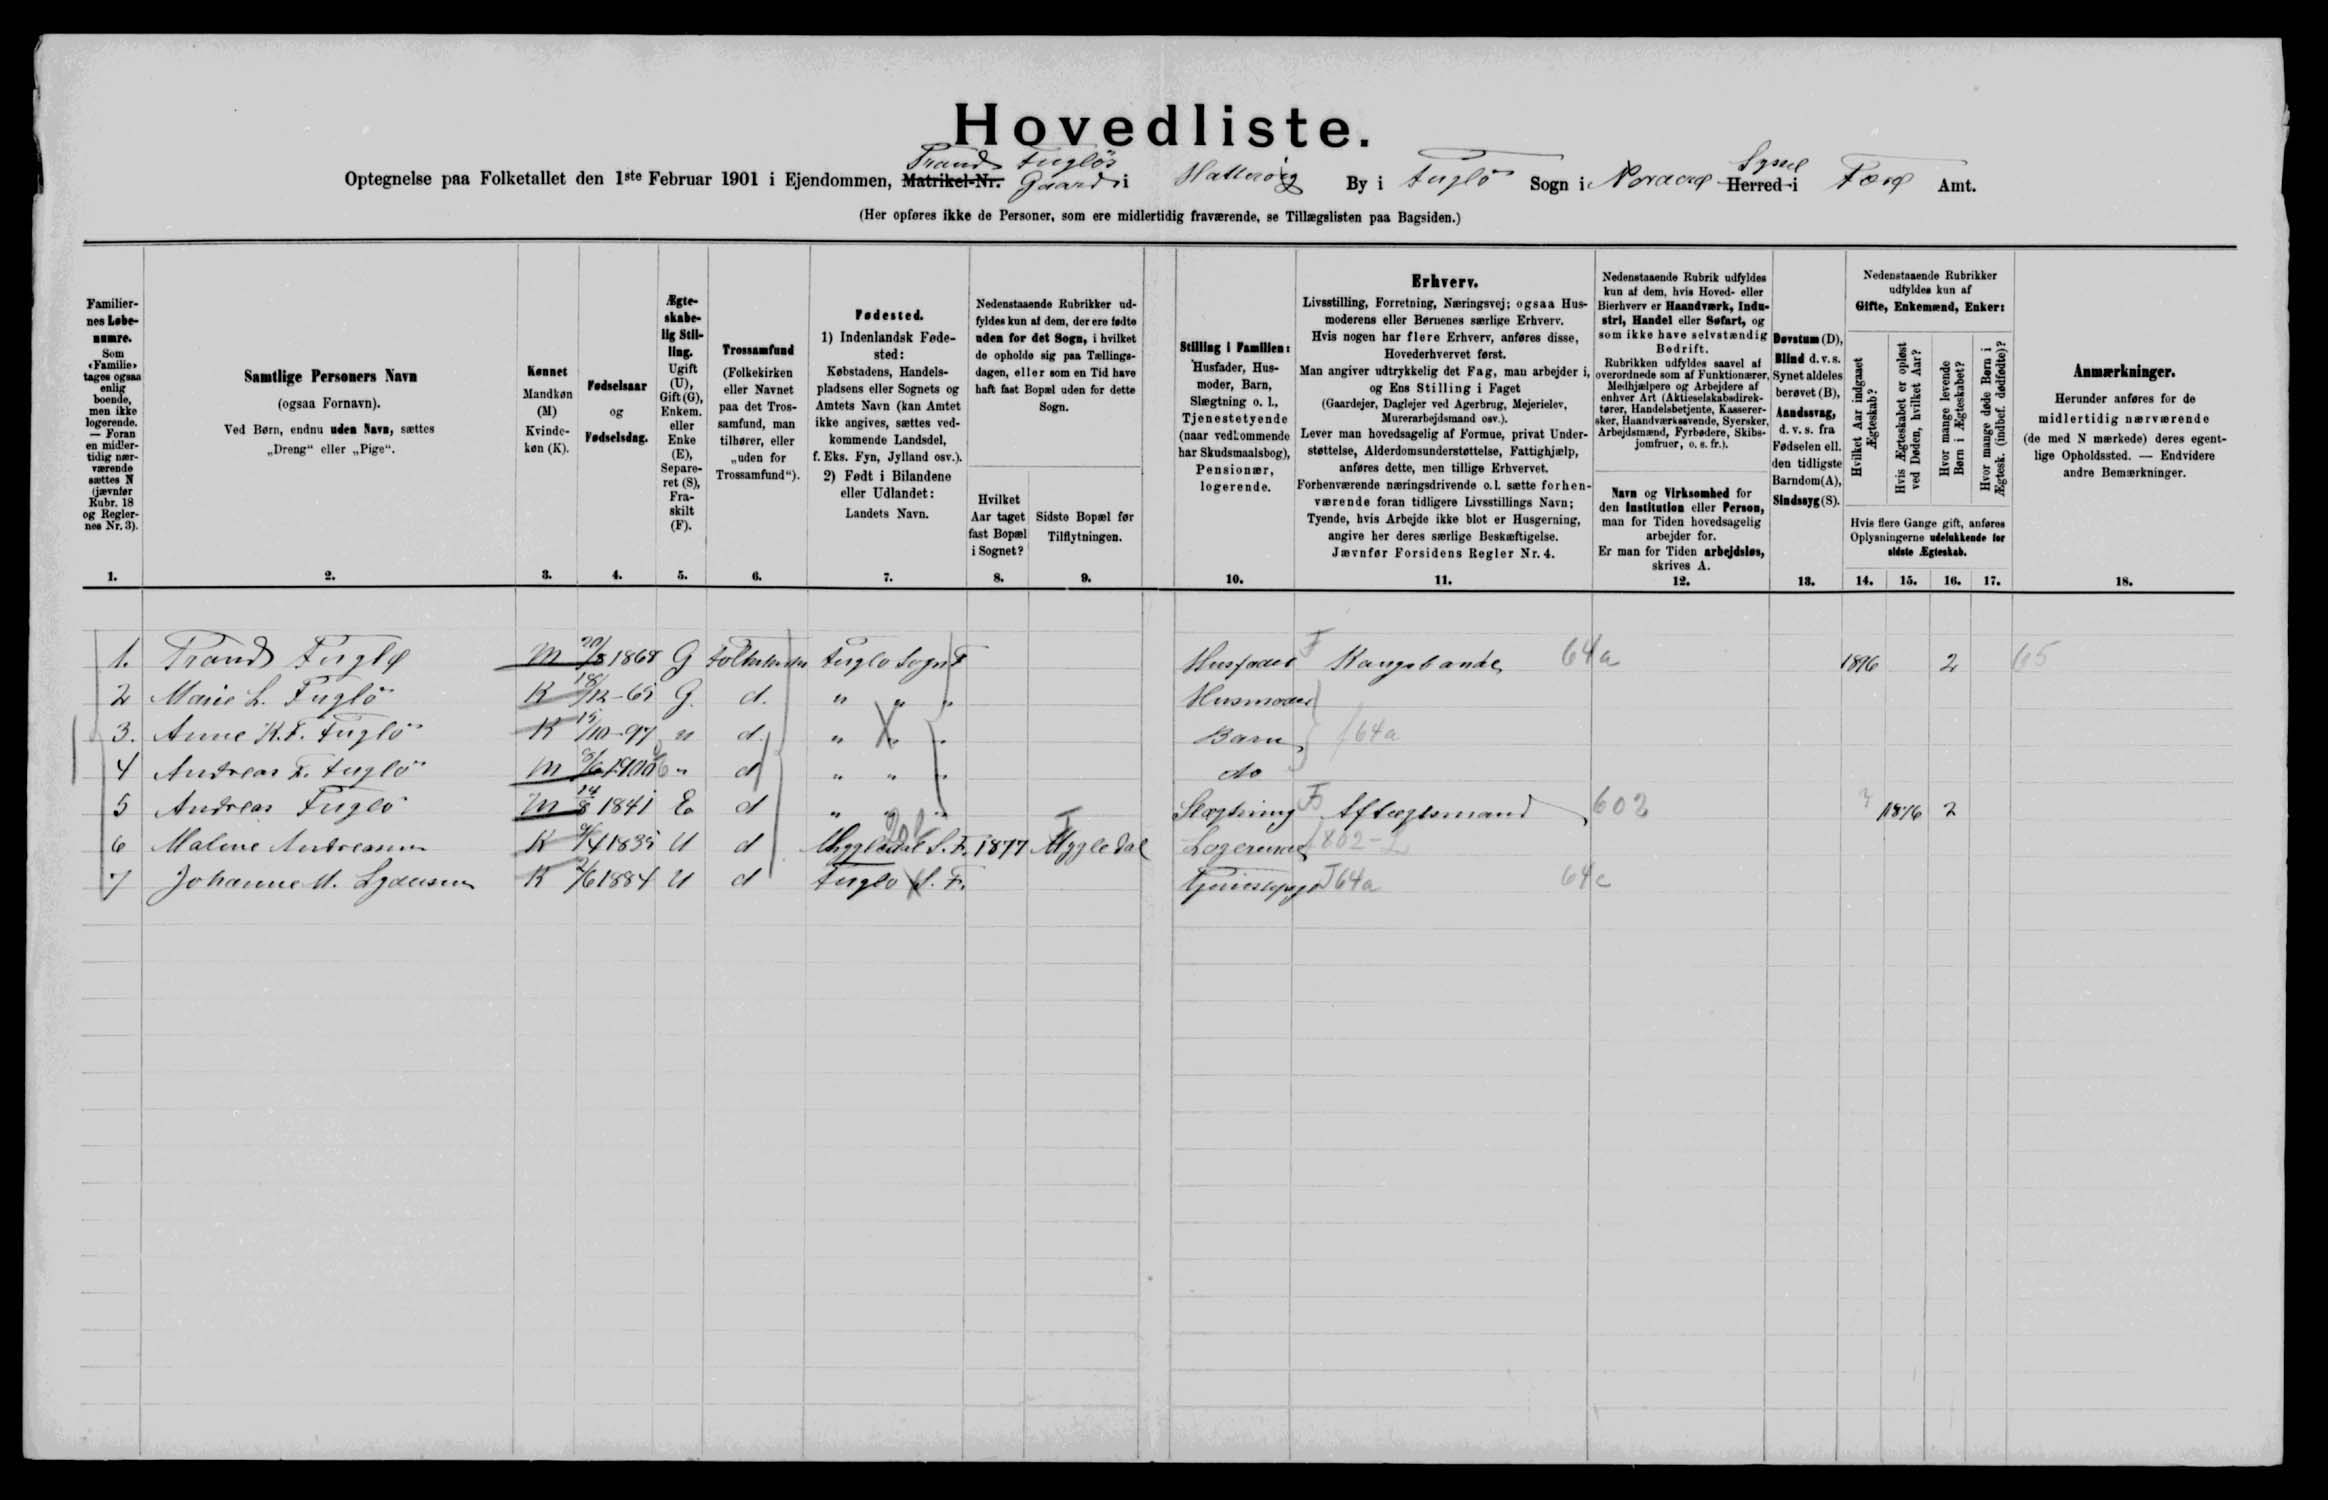 Hovedliste.
Trand Fugløs Syssel
Optegnelse paa Folketallet den 1ste Februar 1901 i Ejendommen, Matrikel-Nr. Gaard i Hattervig By i Fuglö Sogn i Norderø Herred i Færø Amt.
(Her opføres ikke de Personer, som ere midlertidig fraværende, se Tillægslisten paa Bagsiden.)
Familiernes Løbenumre. Som «Familie» tages ogsaa enlig boende, men ikke logerende. — Foran en midlertidig nærværende sættes N (jævnfør Rubr. 18 og Reglernes Nr. 3).
Samtlige Personers Navn (ogsaa Fornavn). Ved Børn, endnu uden Navn, sættes „Dreng“ eller „Pige“.
Kønnet Mandkøn (M) Kvindekøn (K).
Fødselsaar og Fødselsdag.
Ægteskabelig Stilling. Ugift (U), Gift (G), Enkem. eller Enke (E), Separeret (S), Fraskilt (F).
Trossamfund (Folkekirken eller Navnet paa det Trossamfund, man tilhører, eller „uden for Trossamfund“).
Fødested. 1) Indenlandsk Fødested: Købstadens, Handelspladsens eller Sognets og Amtets Navn (kan Amtet ikke angives, sættes vedkommende Landsdel, f. Eks. Fyn, Jylland osv.). 2) Født i Bilandene eller Udlandet: Landets Navn.
Nedenstaaende Rubrikker udfyldes kun af dem, der ere fødte uden for det Sogn, i hvilket de opholde sig paa Tællingsdagen, eller som en Tid have haft fast Bopæl uden for dette Sogn.
Hvilket Aar taget fast Bopæl i Sognet?
Sidste Bopæl før Tilflytningen.
Stilling i Familien: Husfader, Husmoder, Barn, Slægtning o. l., Tjenestetyende (naar vedkommende har Skudsmaalsbog), Pensionær, logerende.
Erhverv.
Livsstilling, Forretning, Næringsvej; ogsaa Husmoderens eller Børnenes særlige Erhverv.
Hvis nogen har flere Erhverv, anføres disse, Hovederhvervet først.
Man angiver udtrykkelig det Fag, man arbejder i, og Ens Stilling i Faget
(Gaardejer, Daglejer ved Agerbrug, Mejerielev, Murerarbejdsmand osv.).
Lever man hovedsagelig af Formue, privat Understøttelse, Alderdomsunderstøttelse, Fattighjælp, anføres dette, men tillige Erhvervet.
Forhenværende næringsdrivende o. l. sætte forhenværende foran tidligere Livsstillings Navn;
Tyende, hvis Arbejde ikke blot er Husgerning, angive her deres særlige Beskæftigelse.
Jævnfør Forsidens Regler Nr. 4.
Nedenstaaende Rubrik udfyldes kun af dem, hvis Hoved- eller Bierhverv er Haandværk, Industri, Handel eller Søfart, og som ikke have selvstændig Bedrift.
Rubrikken udfyldes saavel af overordnede som af Funktionærer, Medhjælpere og Arbejdere af enhver Art (Aktieselskabsdirektører, Handelsbetjente, Kasserersker, Haandværkssvende, Syersker, Arbejdsmænd, Fyrbødere, Skibsjomfruer, o. s. fr.).
Navn og Virksomhed for den Institution eller Person, man for Tiden hovedsagelig arbejder for.
Er man for Tiden arbejdsløs, skrives A.
Døvstum (D), Blind d. v. s. Synet aldeles berøvet (B), Aandssvag, d. v. s. fra Fødselen ell. den tidligste Barndom (A), Sindssyg (S).
Nedenstaaende Rubrikker udfyldes kun af Gifte, Enkemænd, Enker:
Hvilket Aar indgaaet Ægteskab?
Hvis Ægteskabet er opløst ved Døden, hvilket Aar?
Hvor mange levende Børn i Ægteskabet?
Hvor mange døde Børn i Ægtesk. (indbef. dødfødte)?
Hvis flere Gange gift, anføres Oplysningerne udelukkende for sidste Ægteskab.
Anmærkninger.
Herunder anføres for de midlertidig nærværende (de med N mærkede) deres egentlige Opholdssted. — Endvidere andre Bemærkninger.
1. 2. 3. 4. 5. 6. 7. 8. 9. 10. 11. 12. 13. 14. 15. 16. 17. 18.
1. Trand Fuglø M 20/8 1868 G Folkekirken Fuglo Sogn F Husfader F Kongsbonde 64a 1896 2 65
2 Marie L. Fuglö K 18/12-65 G. d. " " " Husmoder
3. Anne K.F. Fuglö K 15/10-97 u d. " " " Barn 64a
4 Andreas F. Fuglö M 3/6 1900 " d " " " do
5 Andreas Fuglö M 14/8 1841 E d " " " Slægtning F Aftægtsmand 602 1876 2
6 Maline Andreasen K 9/4 1835 U d Myggledal S. F. 1877 Myggledal Logerende 802-2
7 Johanne M. K 2/6 1884 U d Fuglo S. F. Tjenestepige T64a 64c